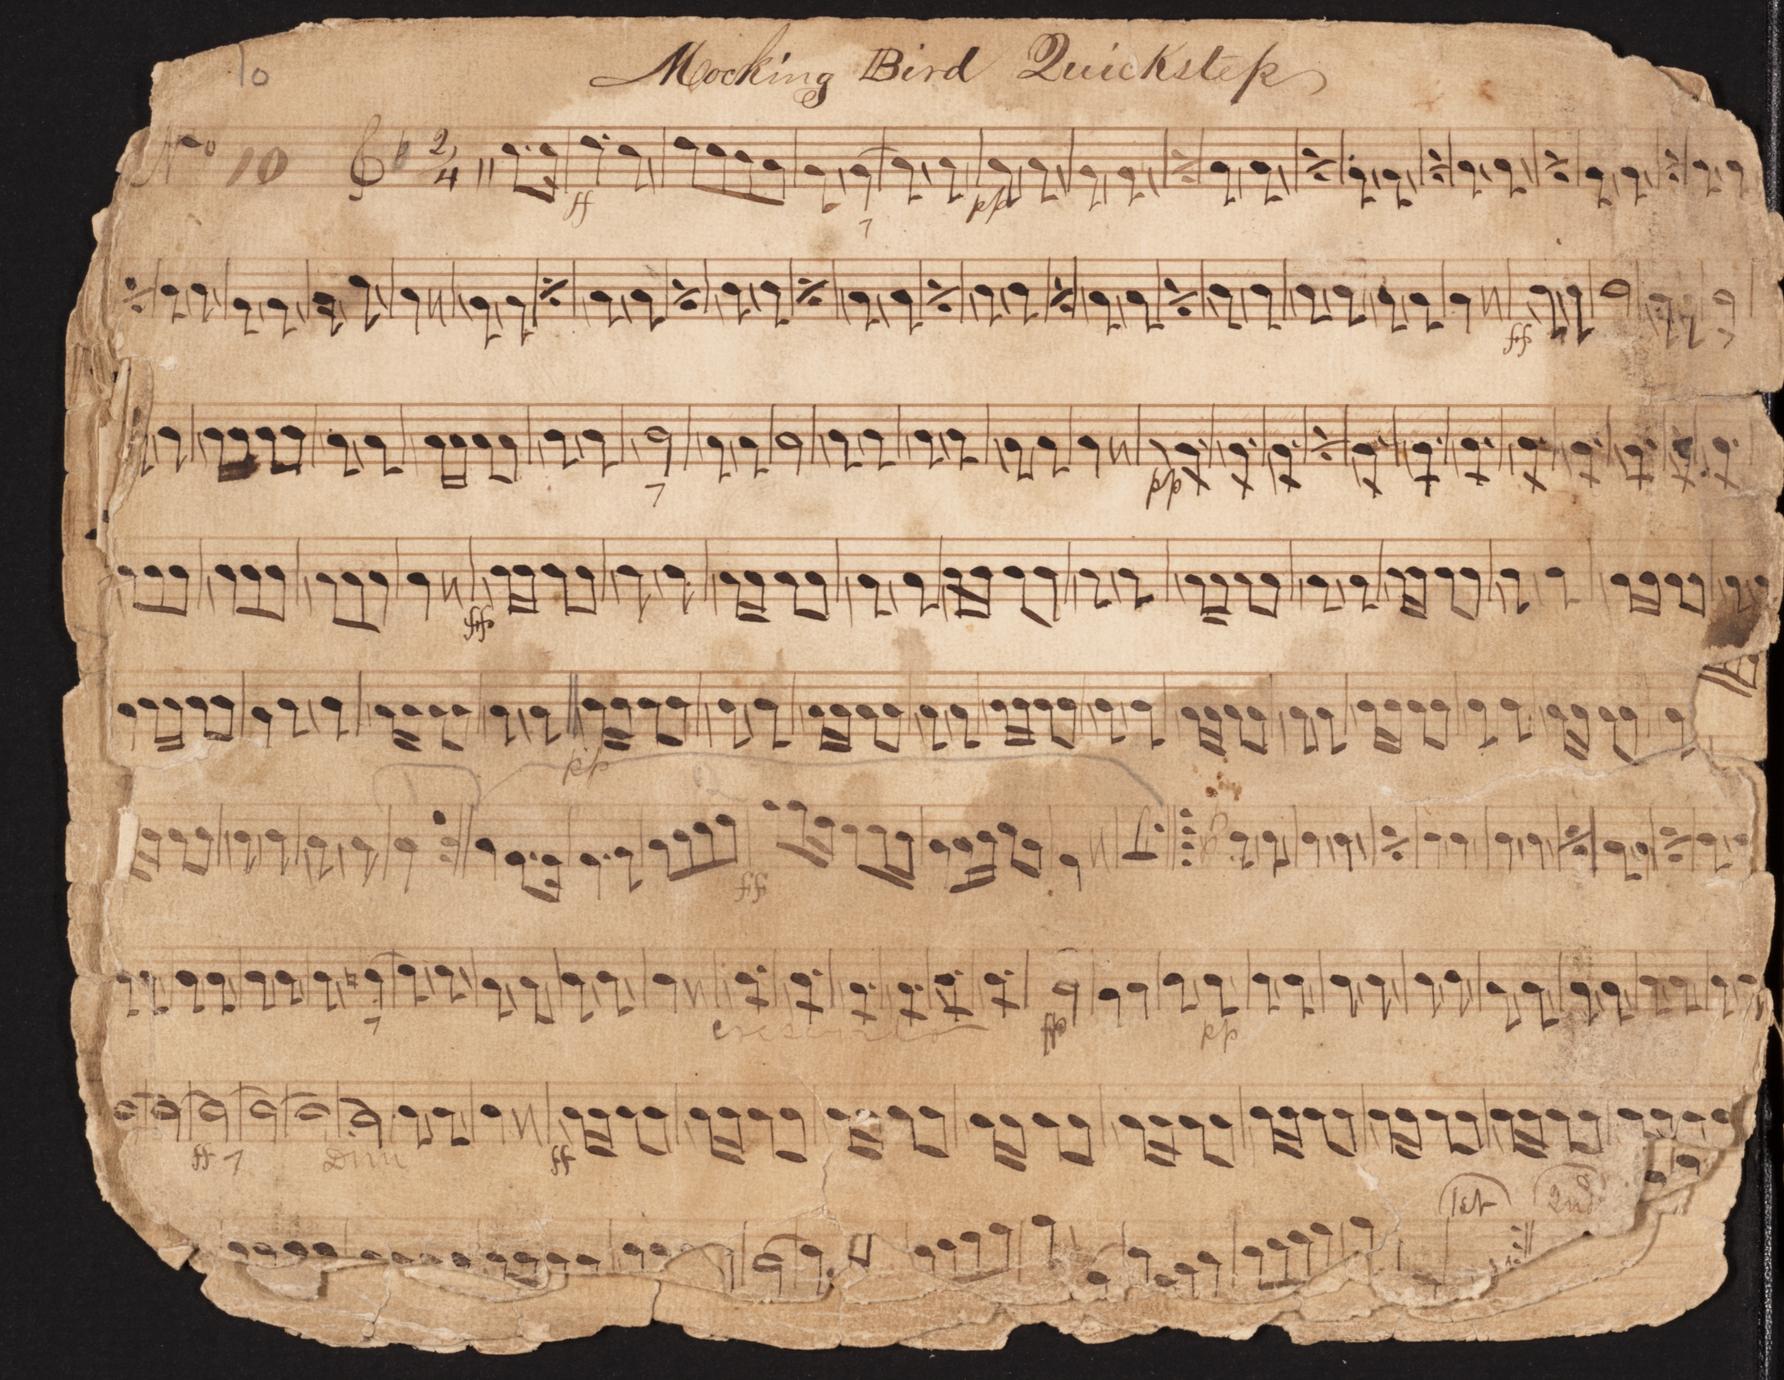 10
Mocking Bird Quickstep
No 10 2/4
ff pp
ff
pp
ff
pp
ff
crescendo ff pp
ff Dim ff
1st 2nd